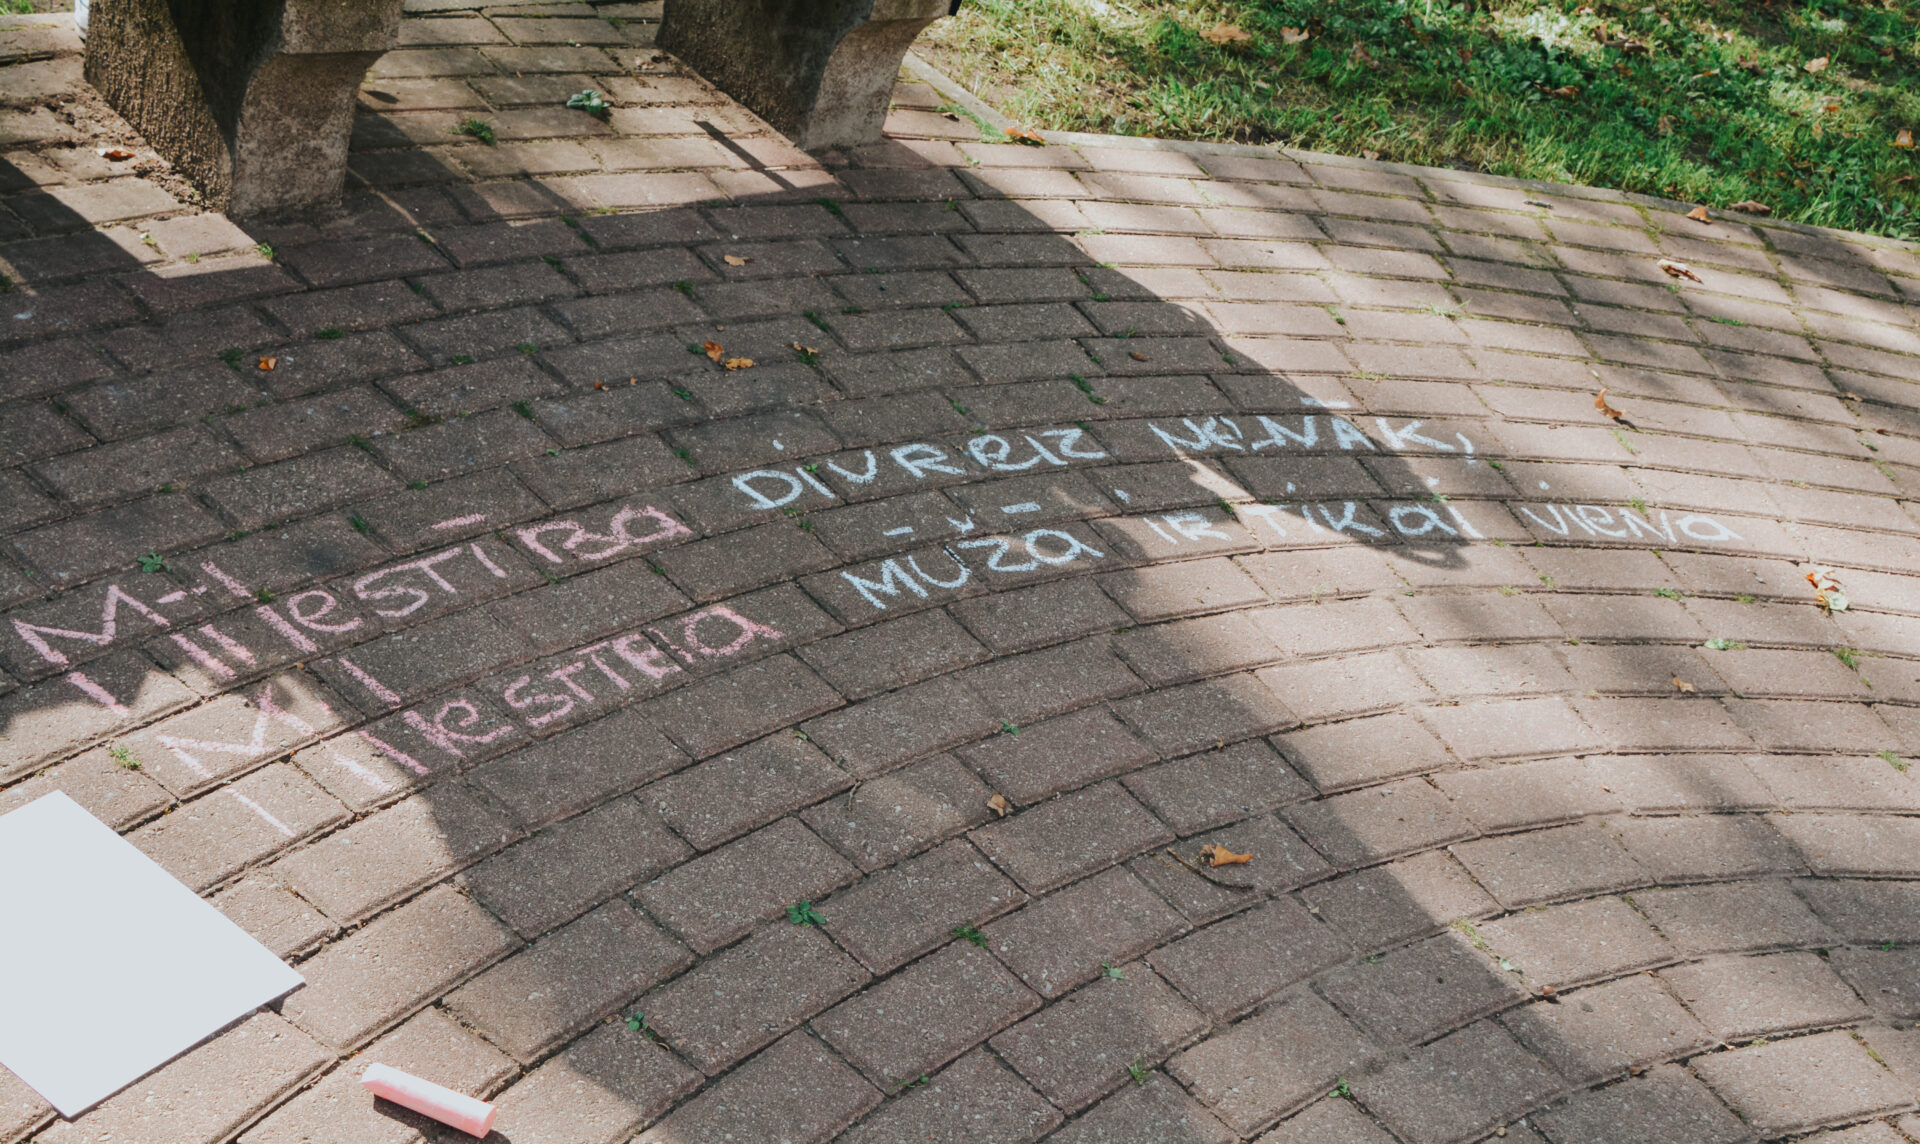 MīleSTīBa DiVReiZ NeNĀK,
MīleSTIBa MŪŽā iR TiKai VieNa